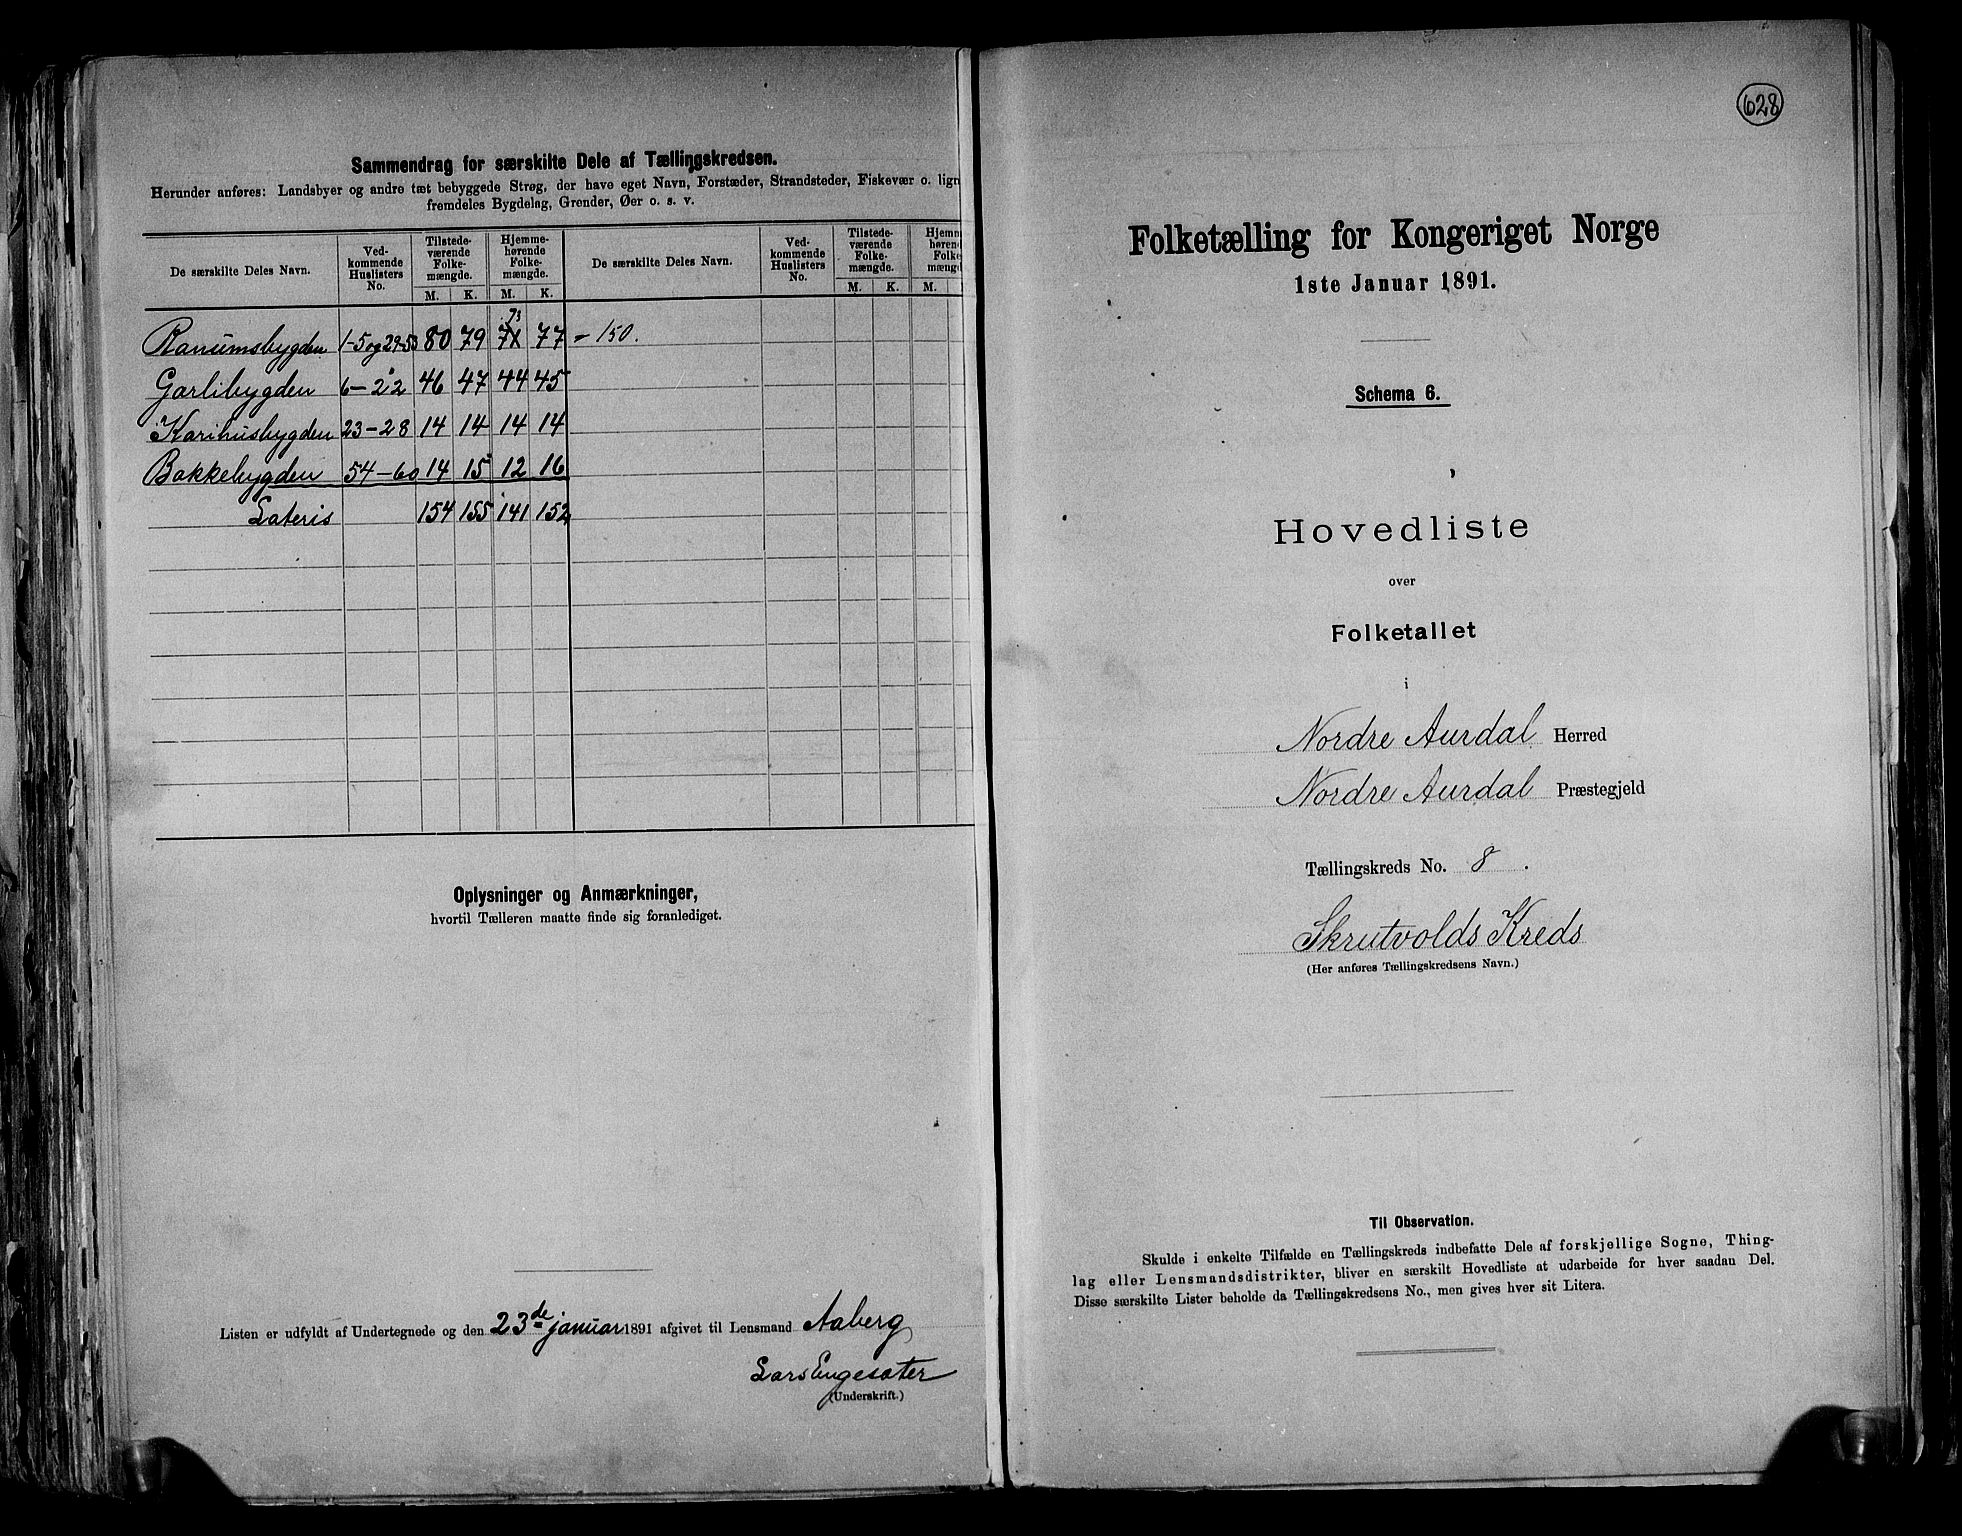 Sammendrag for særskilte Dele af Tællingskredsen.
Herunder anføres: Landsbyer og andre tæt bebyggede Strøg, der have eget Navn, Forstæder, Strandsteder, Fiskevær o. lign
fremdeles Bygdelag, Grender, Øer o. s. v.
De særskilte Deles Navn. Ved-kommende Huslisters No. Tilstede-værende Folke-mængde. Hjemme-hørende Folke-mængde. De særskilte Deles Navn. Ved-kommende Huslisters No. Tilstede-værende Folke-mængde. Hjemm hørend Folke mængd
M. K. M. K. M. K. M.
73
Ranumsbygden 1-5 og 29-53 80 79 71 77 - 150.
Garlibygden 6-22 46 47 44 45
Karihusbygden 23-28 14 14 14 14
Bakkebygden 54-60 14 15 12 16
Lateris 154 155 141 152
Oplysninger og Anmærkninger,
hvortil Tælleren maatte finde sig foranlediget.
Listen er udfyldt af Undertegnede og den 23de januar 1891 afgivet til Lensmand Aaberg
Lars Engesæter
(Underskrift.)
628
Folketælling for Kongeriget Norge
1ste Januar 1891.
Schema 6.
Hovedliste
over
Folketallet
i
Nordre Aurdal Herred
Nordre Aurdal Præstegjeld
Tællingskreds No. 8.
Skrutvolds Kreds
(Her anføres Tællingskredsens Navn.)
Til Observation.
Skulde i enkelte Tilfælde en Tællingskreds indbefatte Dele af forskjellige Sogne, Thing-
lag eller Lensmandsdistrikter, bliver en særskilt Hovedliste at udarbeide for hver saadan Del.
Disse særskilte Lister beholde da Tællingskredsens No., men gives hver sit Litera.